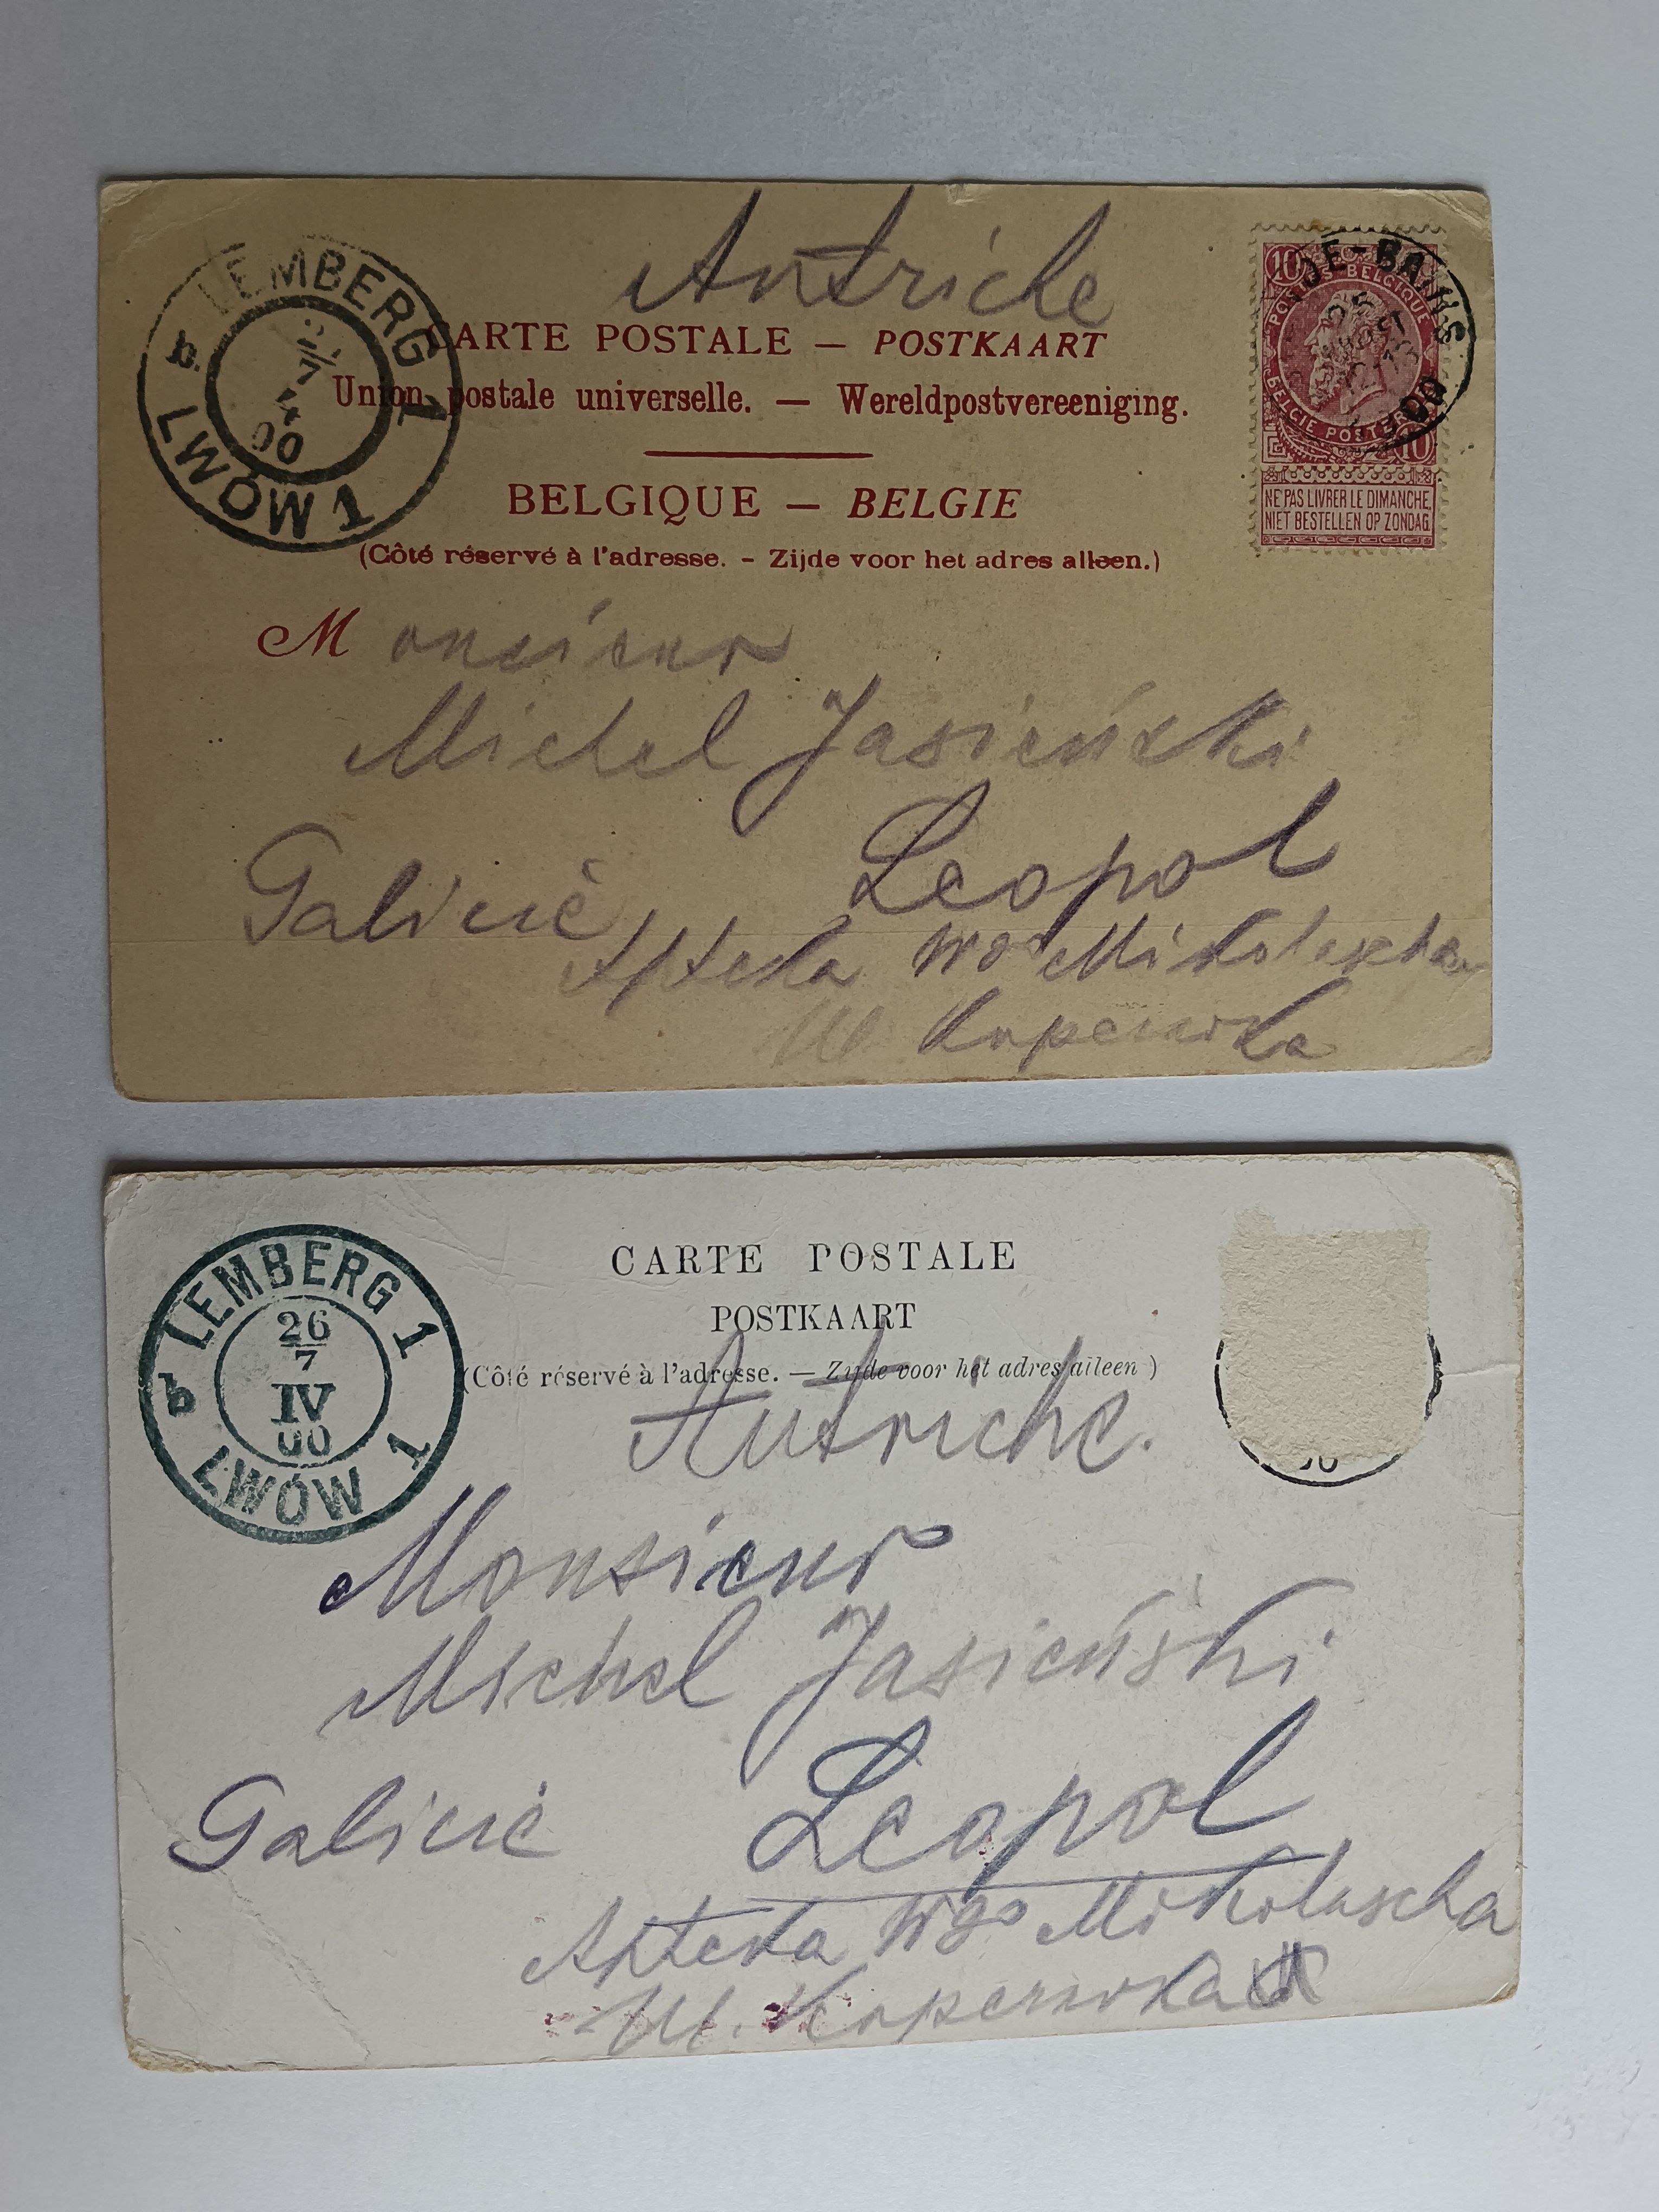 Autriche
CARTE POSTALE — POSTKAART
Union postale universelle. — Wereldpostvereeniging.
BELGIQUE — BELGIE
(Côté réservé à l'adresse. - Zijde voor het adres alleen.)
LEMBERG 1
b
00
LWÓW 1
10
POSTES BELGIQUE
BELGIE POSTERIJEN
10
NE PAS LIVRER LE DIMANCHE
NIET BESTELLEN OP ZONDAG
DE-BAINS
25
00
Monsieur
Michel Jasieński
Leopol
Galicie
Apteka Wgo Mikolascha
Ul. Kopernika
CARTE POSTALE
POSTKAART
(Côté réservé à l'adresse. — Zijde voor het adres alleen)
LEMBERG 1
26
7
IV
00
b
LWÓW 1
Autriche.
Monsieur
Michel Jasieński
Leopol
Galicie
Apteka Wgo Mikolascha
Ul. Kopernika